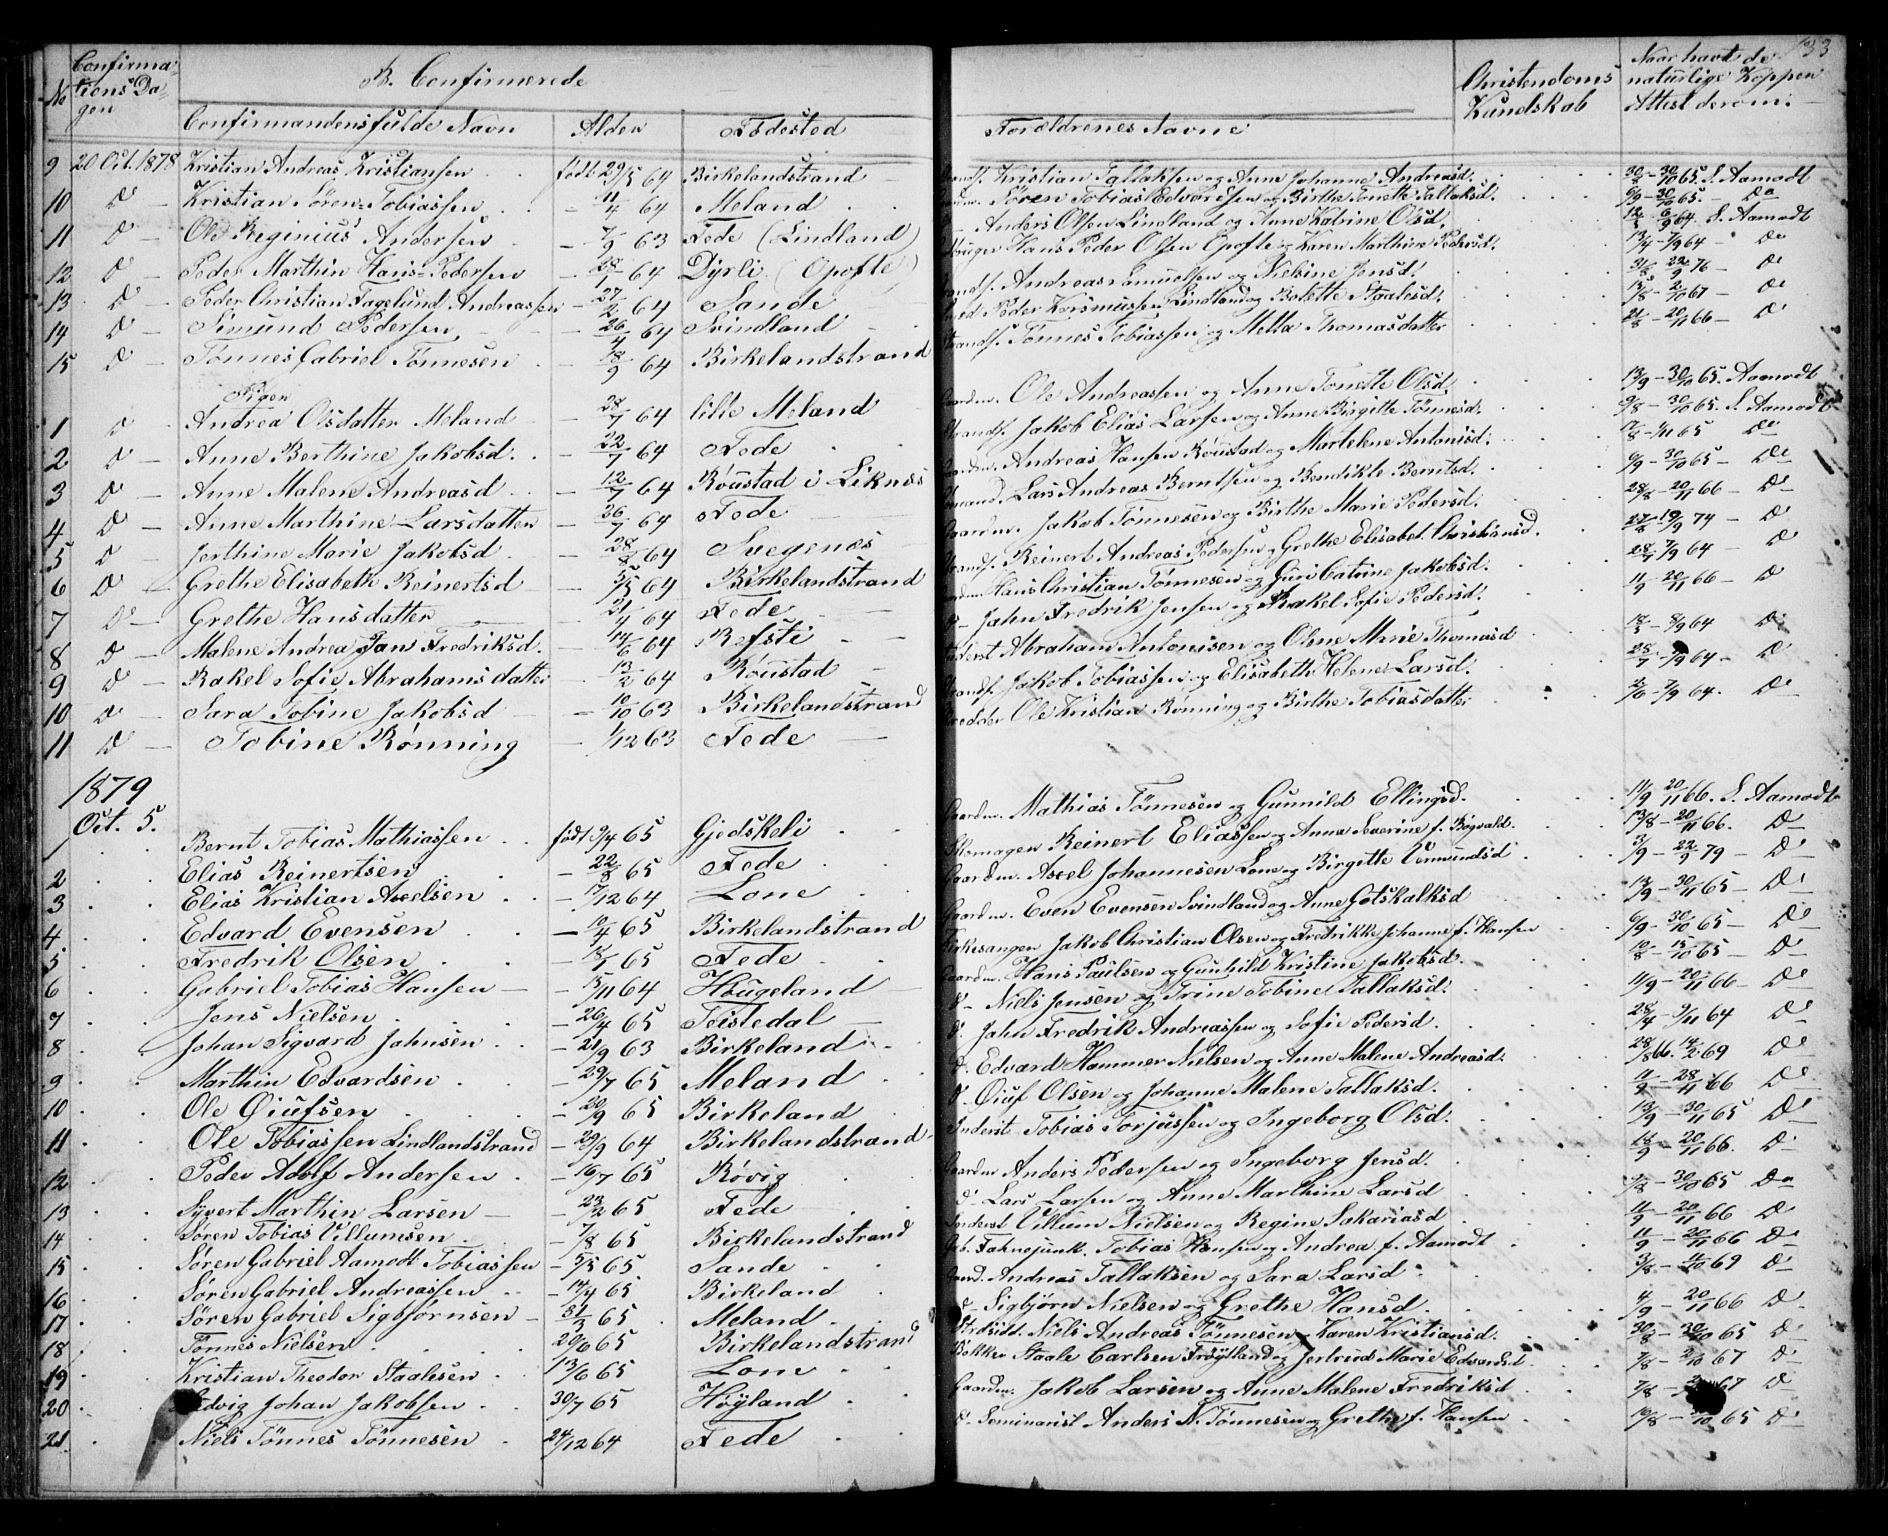 133
No
Confirma-
tions Da-
gen
B. Confirmerede
Christendoms
Kundskab
Naar havt de
naturlige Kopper
Attest derom.
Confirmandens fulde Navn Alder Fødested Forældrenes Navne
9 20 Oct. 1878 Kristian Andreas Kristiansen født 29/5 64 Birkelandstrand Kristian Tallaksen og Anna Johanne Andreasd. 65. S. Aamodt
10 D Kristian Sören Tobiassen 11/4 64 Meland Sören Tobias Edvardsen og Birthe Tonette Tallaksd. 65. Do
11 D Ole Reginius Andersen 7/9 63 Fede (Lindland) Anders Olsen Lindland og Anne Katrine Olsd. 64. S. Aamodt
12 D Peder Marthin Hans-Pedersen 28/1 64 Dyrli (Opofte) Hans Peder Olsen Opofte og Karen Marthine Pedersd. 7/9 64 Do
13 D Peder Christian Fagelund Andreassen 27/2 64 Sande Andreas Samuelsen og Nielsine Jensd. 22/9 76 Do
14 D Simund Pedersen 26/4 64 Svindland Peder Rasmussen Lindland og Bolette Staalesd. 2/10 67 Do
15 D Tönnes Gabriel Tönnesen 18/9 64 Birkelandstrand Tönnes Tobiassen og Metta Thomasdatter 21/8 - 20/11 66 D
Piger
1 D Andrea Olsdatter Meland 28/7 64 lille Meland Gaardm. Ole Andreassen og Anne Tonette Olsd. 13/9 - 30/10 65. Aamodt
2 D Anne Berthine Jakobsd. 22/7 64 Fede Strandf. Jakob Elias Larsen og Anne Birgitte Tönnesd. 9/8 - 30/10 65. S. Aamodt
3 D Anne Malene Andreasd 12/7 64 Röustad i Liknes Andreas Hansen Röustad og Martelene Antonisd. 17/8 - 1/11 65 Do
4 D Anne Marthine Larsdatter 26/7 64 Fede Lars Andreas Berntsen og Bendikte Berntsd. 6/9 - 30/10 65 Do
5 D Jerthine Marie Jakobsd 64 Svegenæs Gaardm. Jakob Tönnesen og Birthe Marie Pedersd. 28/8 - 20/11 66 D
6 D Grethe Elisabeth Reinertsd 3/5 64 Birkelandstrand Strandf. Reinert Andreas Pedersen og Grethe Elisabet Christiansd. 19/9 74 D
7 D Grethe Hansdatter 21/4 64 Fede Hans Christian Tönnesen og Guri Catrine Jakobsd. 7/9 64 D
8 D Malene Andrea Jan Fredriksd. 14/6 64 Refsti Jahn Fredrik Jensen og Rakel Sofie Pedersd. 11/9 - 20/11 66 D
9 D Rakel Sofie Abrahamsdatter 13/2 64 Röustad Inderst Abraham Antonisen og Oline Marie Thomasd 8/9 64 D
10 D Sara Tobine Jakobsd 10/10 63 Birkelandstrand Strandf. Jakob Tobiassen og Elisabeth Helene Larsd. 28/7 - 7/9 64 D
11 D Tobine Rønning 1/12 63 Fede Ole Kristian Rønning og Birthe Tobiasdatter 7/9 64. D
1879
Oct. 5.
1 Bernt Tobias Mathiassen født 9/4 65 Gjedskeli Gaardm. Mathias Tönnesen og Gunnild Ellingsd. 11/9 20/11 66. S. Aamodt
2 Elias Reinertsen 22/8 65 Fede Skomager Reinert Eliassen og Anna Severine f. Bögvald. 13/8 - 20/11 66. D
3 Elias Kristian Axelsen 17/12 64 Lone Gaardm. Axel Johannesen Lone og Birgitte Vermundsd 3/9 - 22/9 79 D
4 Edvard Evensen 10/4 65 Birkelandstrand Gaardm. Even Evensen Svindland og Anne Gotskalksd 13/9 - 30/11 65 D
5 Fredrik Olsen 18/1 65 Fede Kirkesanger Jakob Christian Olsen og Fredrikke Johanne f. Hansen 6/9 - 30/10 65 D
6 Gabriel Tobias Hansen 15/11 64 Hougeland Gaardm. Hans Paulsen og Gunhild Kristine Jakobsd. 15/10 65 D
7 Jens Nielsen 26/4 65 Feistedal D Niels Jensen og Trine Tobine Tallaksd. 11/9 - 20/11 66 D
8 Johan Sigvard Jahnsen 21/9 63 Birkeland D. Jahn Fredrik Andreassen og Sofie Pedersd. 28/4 - 9/11 64 D
9 Marthin Edvardsen 29/7 65 Meland D. Edvard Hammer Nielsen og Anne Malene Andreasd. 28/8 66. 14/2 69 D
10 Ole Øiufsen 20/9 65 Birkeland D. Øiuf Olsen og Johanne Malene Tallaksd. 28/11 66 D
11 Ole Tobiassen Lindlandstrand 29/9 64 Birkelandstrand Inderst Tobias Torjussen og Ingeborg Olsd. 13/9 - 30/11 65 D
12 Peder Adolf Andersen 16/7 65 Røvig Gaardm Anders Pedersen og Ingeborg Jensd. 18/9 - 20/11 66. D
13 Syvert Marthin Larsen 23/2 65 Fede D. Lars Larsen og Anne Marthine Larsd 30/10 65 Do
14 Sören Tobias Villumsen 7/8 65 Birkelandstrand Inderst Villum Nielsen og Regine Sakariasd 11/9 - 20/11 66 D
15 Sören Gabriel Aamodt Tobiassen 5/5 65 Sande Tobias Hansen og Andrea f. Aamodt 11/9 - 20/11 66 D
16 Sören Gabriel Andreassen 17/4 65 Birkeland Gaard. Andreas Tallaksen og Sara Larsd 3/8 - 14/10 69 D
17 Sören Gabriel Sigbjørnsen 31/3 65 Meland D Sigbjørn Nielsen og Grethe Hansd. 4/9 - 20/11 66 D
18 Tönnes Nielsen 20/6 65 Birkelandstrand Niels Andreas Tönnesen, Karen Kristiansd. 30/8 - 30/10 65 D
19 Kristian Theodor Staalesen 13/6 65 Lone Staale Carlsen Frøytland og Jertrud Marie Edvardsd 7/8 - 2/10 67 D
20 Edvig Johan Jakobsen 30/7 65 Höyland Gaardm. Jakob Larsen og Anne Malene Fredriksd 7/8 67 D
21 Niels Tönnes Tönnesen 24/12 64 Fede D. Seminarist Anders N. Tönnesen og Grethe f. Hansen 10/8 65 D